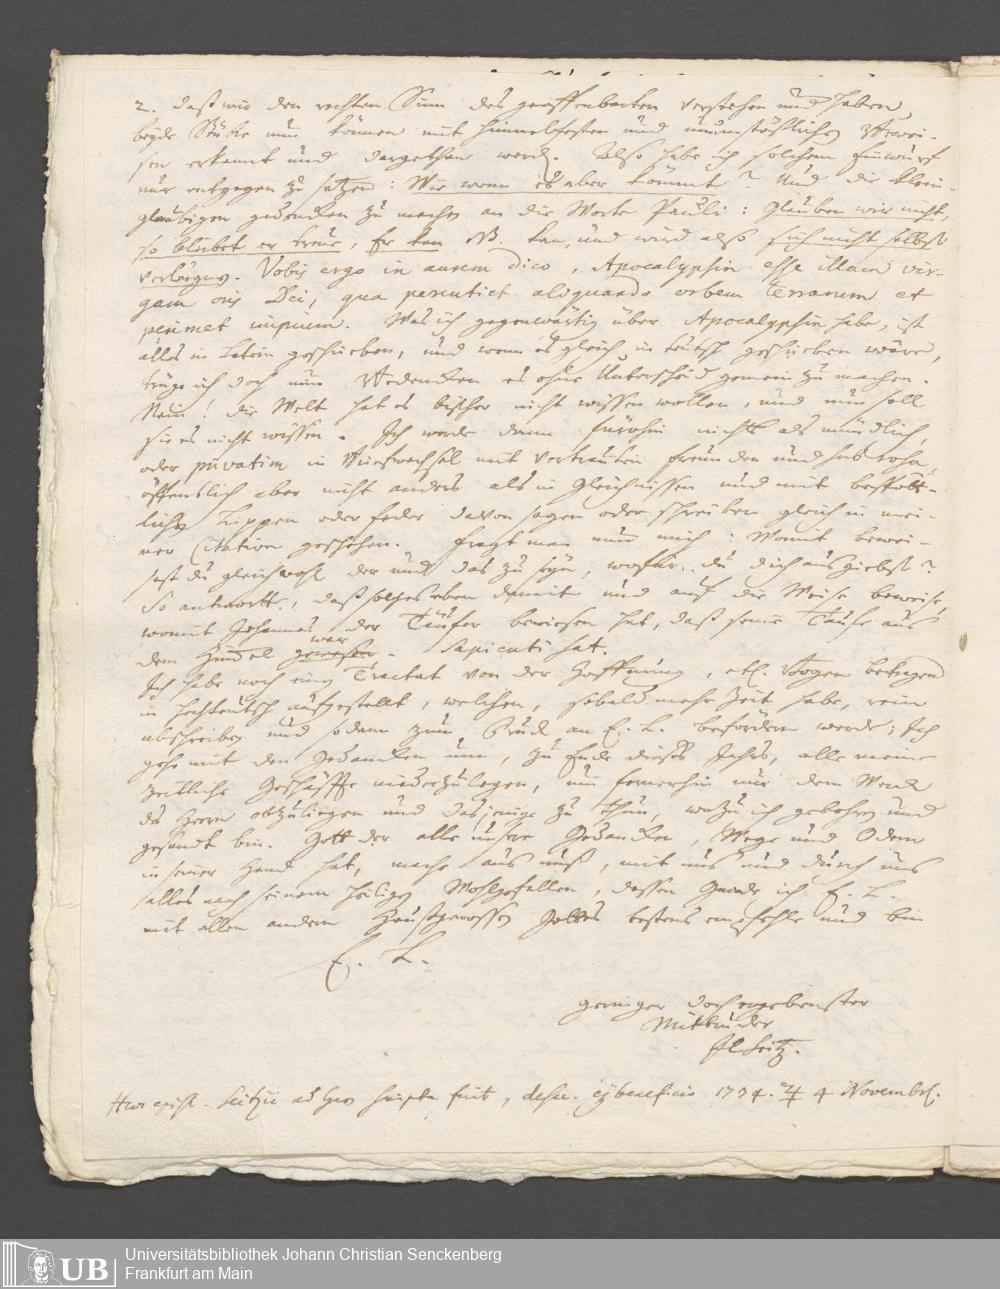 2. daß wir den rechten Sinn des geoffenbarten verstehen und haben,
beyde Stücke nun können mit himmelfesten und unumstößlichen Bewei-
sen erkannt und dargethan werden. Also habe ich solchem Einwurf
nur entgegen zu setzen: Wie wenn es aber kömmt? Und die klein-
glaubigen gedencken zu machen an die Worte Pauli: Glauben wir nicht,
so bleibet er treu, Er kan NB. kan, und wird also sich nicht selbst
verleugnen. Vobis ergo in aurem dico, Apocalypsin esse illam vir-
gam oris Dei, qua percutiet aliquando orbem terrarum et
perimet impium. Was ich gegenwärtig über Apocalypsin habe, ist
alles in Latein geschrieben, und wenn es gleich in teutsch geschrieben wäre,
trüge ich doch nun Bedencken es ohne Unterscheid gemein zu machen.
Nein! die Welt hat es bißher nicht wissen wollen, und nun soll
sie es nicht wissen. Ich werde dann fürohin nichts als mündlich,
oder privatim in Briefwechsel mit vertrauten Freunden und
öffentlich aber nicht anders als in Gleichnissen und mit
lichen Lippen oder Feder davon sagen oder schreiben gleich in mei-
ner Citation geschehen. Fragt man nun mich: Womit bewei-
sest du gleichwohl der und das zu seyn, wofür du dich ausgiebst?
So antworte, daß solches eben damit und auf die Weise beweise,
womit Johannes der Täufer bewiesen hat, daß seine Taufe aus
dem Himmel gewesen war. Sapienti sat.
Ich habe noch einen Tractat von der Hoffnung, etl. Bogen betragend
in hochteutsch aufgestellt, welchen, sobald mehr Zeit habe, rein
abschreiben und sodann zum Druck an E. L. befördern werde; Ich
gehe mit den Gedancken um, zu Ende dieses Jahrs, alle meine
zeitliche Geschäffte niederzulegen, um fernerhin nur dem Werck
des Herrn obzuliegen und dasjenige zu thun, wozu ich gebohren und
gesandt bin. Gott der alle unsere Gedancken, Wege und Odem
in seiner Hand hat, mache aus uns, mit uns und durch uns
alles nach seinem heiligen Wohlgefallen, dessen Gnade ich E. L.
mit allen andern Haußgenossen Gottes bestens empfehle und bin
E. L.
geringer doch ergebenster
Mitbruder
Seitz.
Haec epist. Seitzii ad scripta fuit, ej. beneficio 1734. ♃ 4 Novembr.
Universitätsbibliothek Johann Christian Senckenberg
Frankfurt am Main
UB